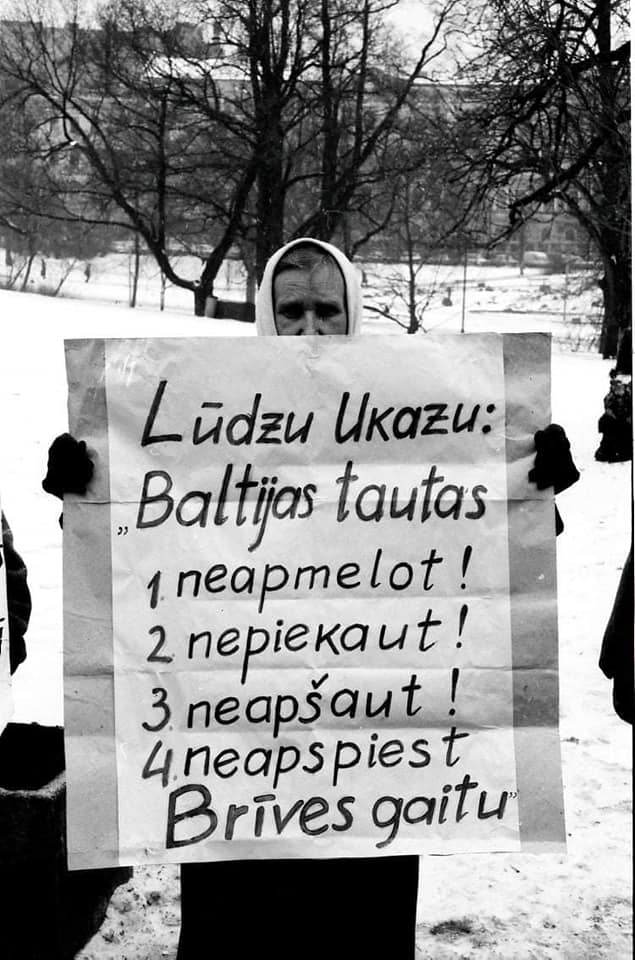 Lūdzu Ukazu:
„Baltijas tautas
1. neapmelot!
2. nepiekaut!
3. neapšaut!
4. neapspiest
Brīves gaitu”